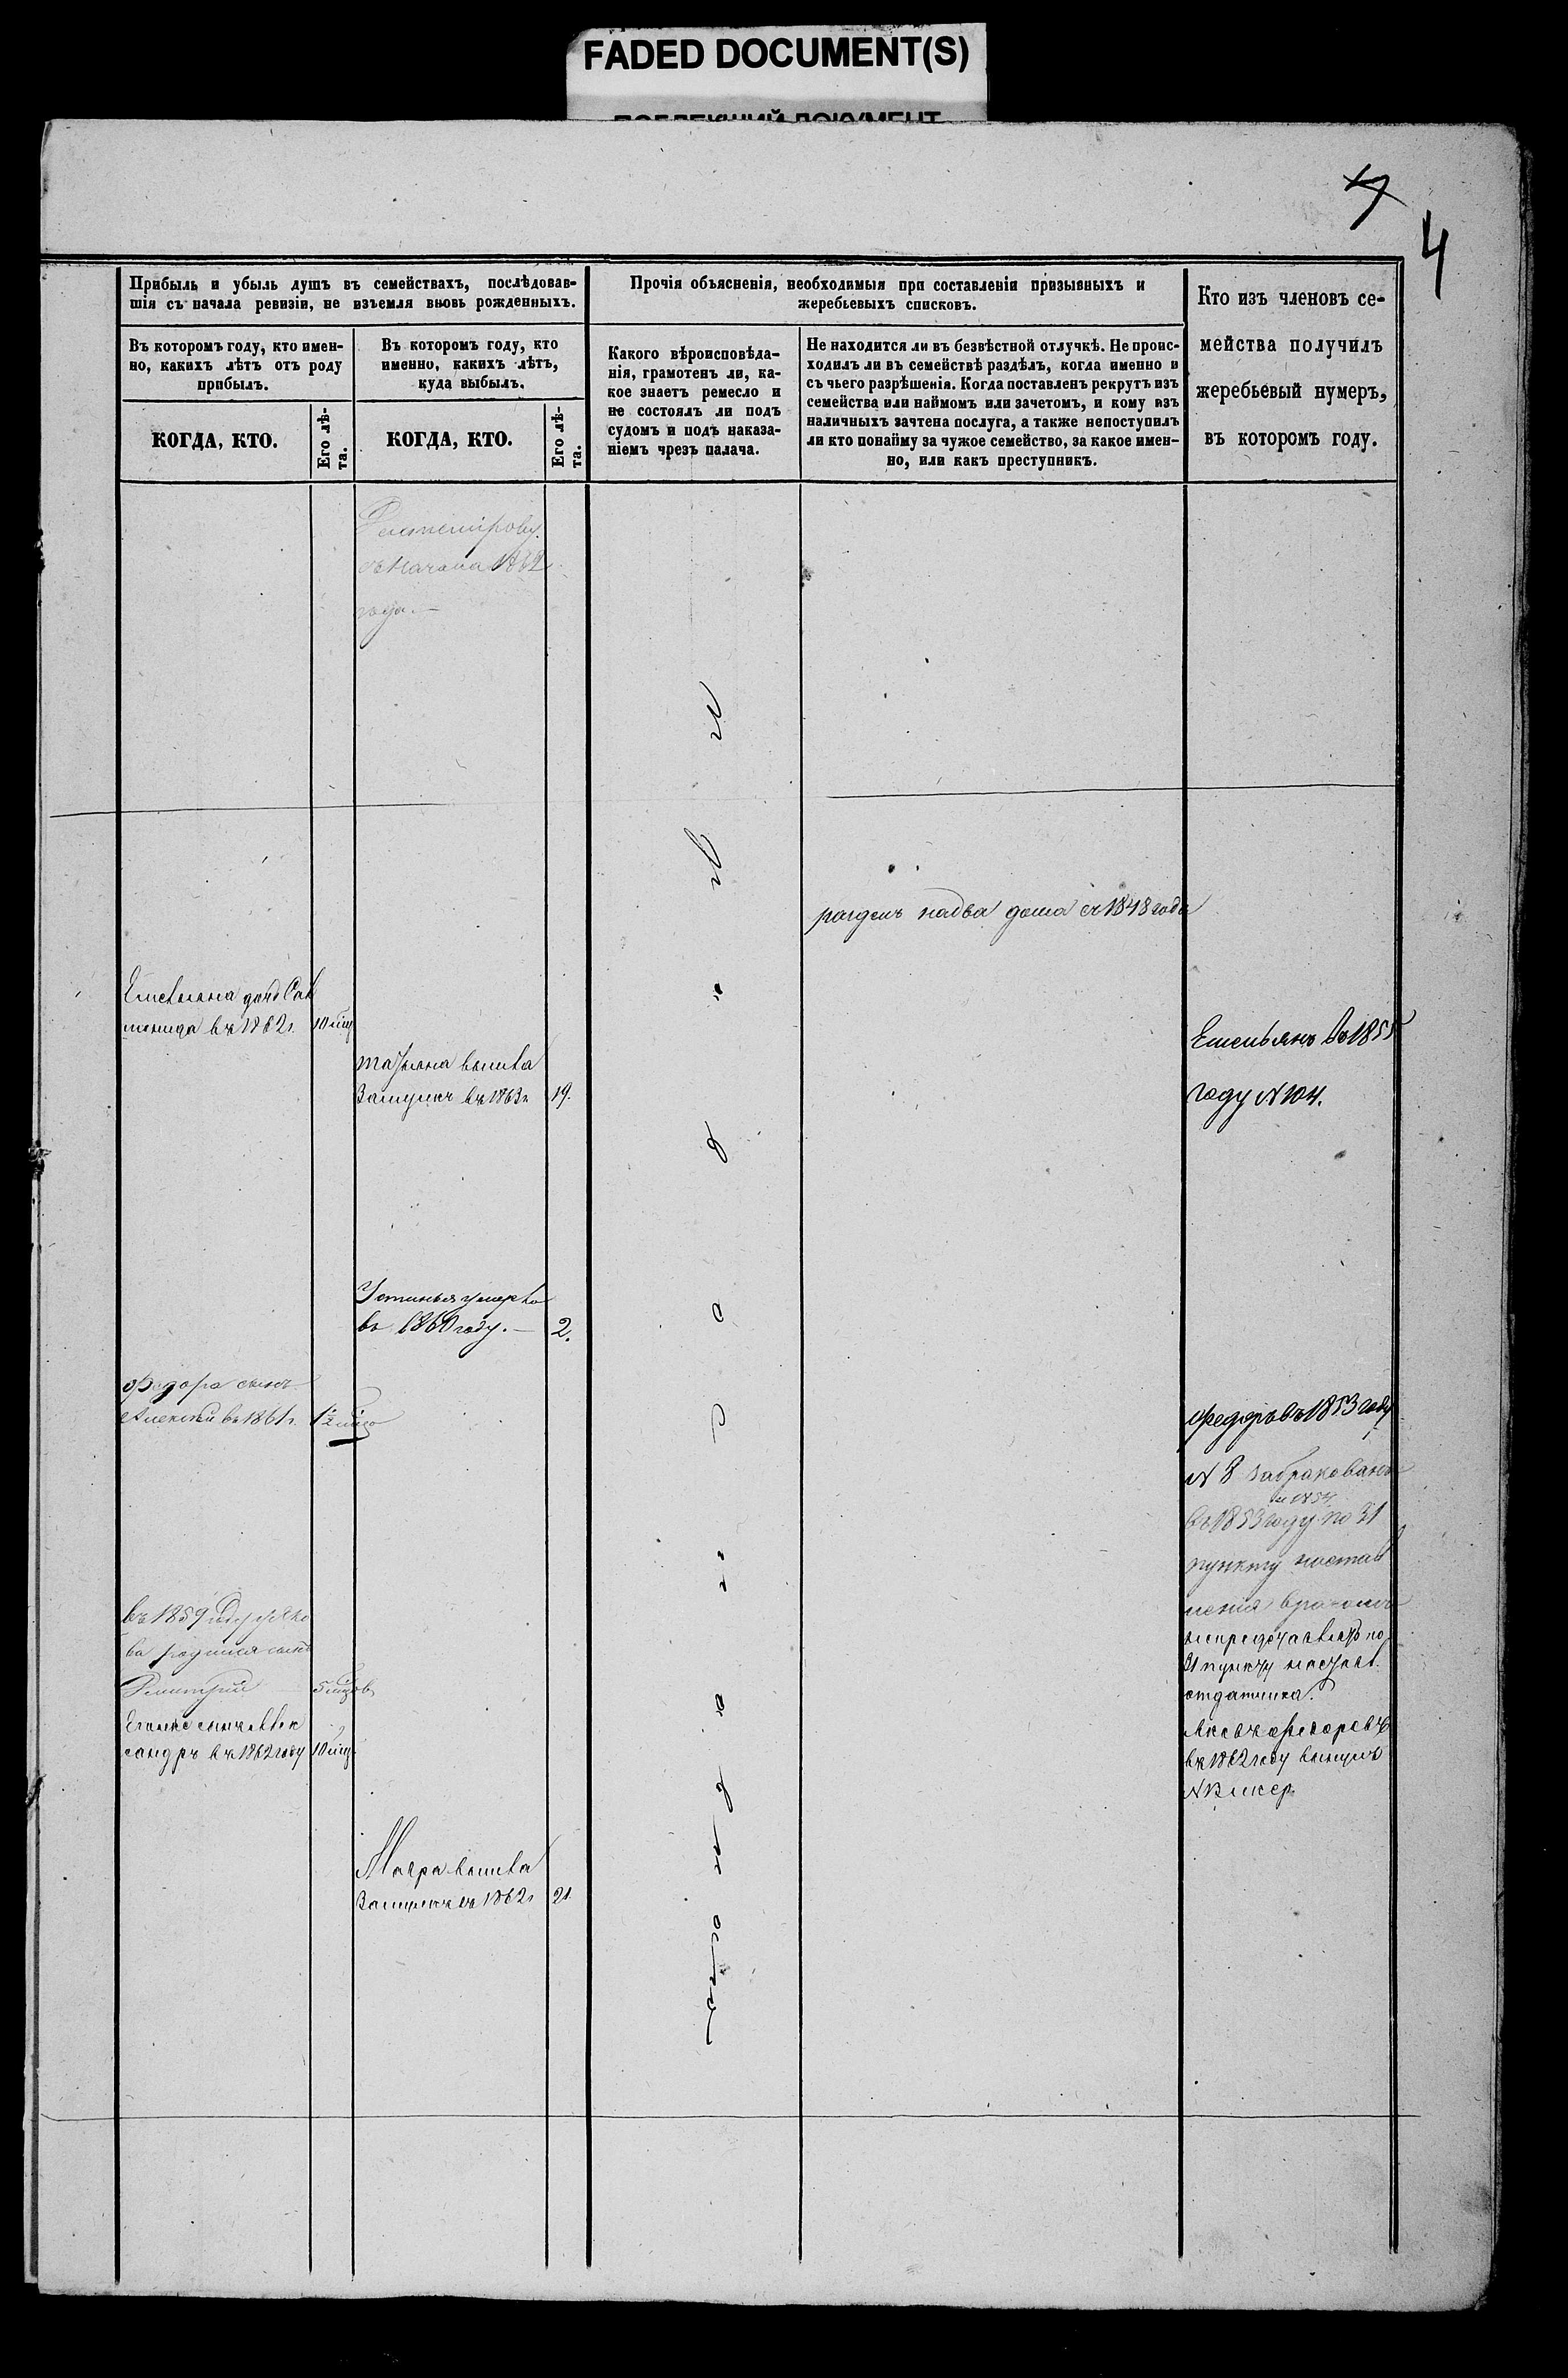 FADED DOCUMENT(S)
4
Прибыль и убыль душъ въ семействахъ, послѣдовав-
шія съ начала ревизіи, не взъемля вновь рожденныхъ.
Прочія объясненія, необходимыя при составленіи призывныхъ и
жеребьевыхъ списковъ.
Кто изъ членовъ се-
мейства получилъ
жеребьевый нумеръ,
въ которомъ году.
Въ которомъ году, кто имен-
но, какихъ лѣтъ отъ роду
прибылъ.
Въ которомъ году, кто
именно, какихъ лѣтъ,
куда выбылъ.
Какого вѣроисповѣда-
нія, грамотенъ ли, ка-
кое знаетъ ремесло и
не состоялъ ли подъ
судомъ и подъ наказа-
ніемъ чрезъ палача.
Не находится ли въ безвѣстной отлучкѣ. Не проис-
ходилъ ли въ семействѣ раздѣлъ, когда именно и
съ чьего разрѣшенія. Когда поставленъ рекрутъ изъ
семейства или наймомъ или зачетомъ, и кому изъ
наличныхъ зачтена послуга, а также непоступилъ
ли кто понайму за чужое семейство, за какое имен-
но, или какъ преступникъ.
КОГДА, КТО.
Его лѣ-
та.
КОГДА, КТО.
Его лѣ-
та.
съ начала 1862
года.—
разделъ надва дома съ 1848 года
Емельяна дочь
въ 1862 г. 10 мѣц
Татьяна вышла
Замужъ въ 1863 г. 19.
Емельянъ въ 1855
году N 104.
Устинья умерла
въ 1860 году.— 2.
Федора сынъ
Алексей въ 1861 г.
Федоръ въ 1853 году
N 8 забракованъ
и 1854
въ 1853 году по 31
пункту настав
ления врачомъ
31 пункту настав.
отдатчика.
въ 1862 году вынулъ
въ 1859 году у Яко
ва родился сынъ
Дмитрий 5 мѣцов
сынъ Алек
сандръ въ 1862 году 10 мѣц.
Мавра вышла
Замужъ въ 1862 г. 21.